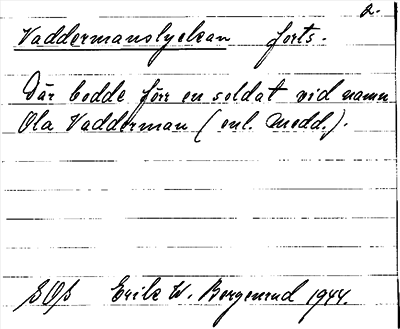 2.
Vaddermanslyckan forts.
Där bodde förr en soldat vid namn
Ola Vadderman (enl. medd.).
SOS Erik W. Bergenrud 1944.